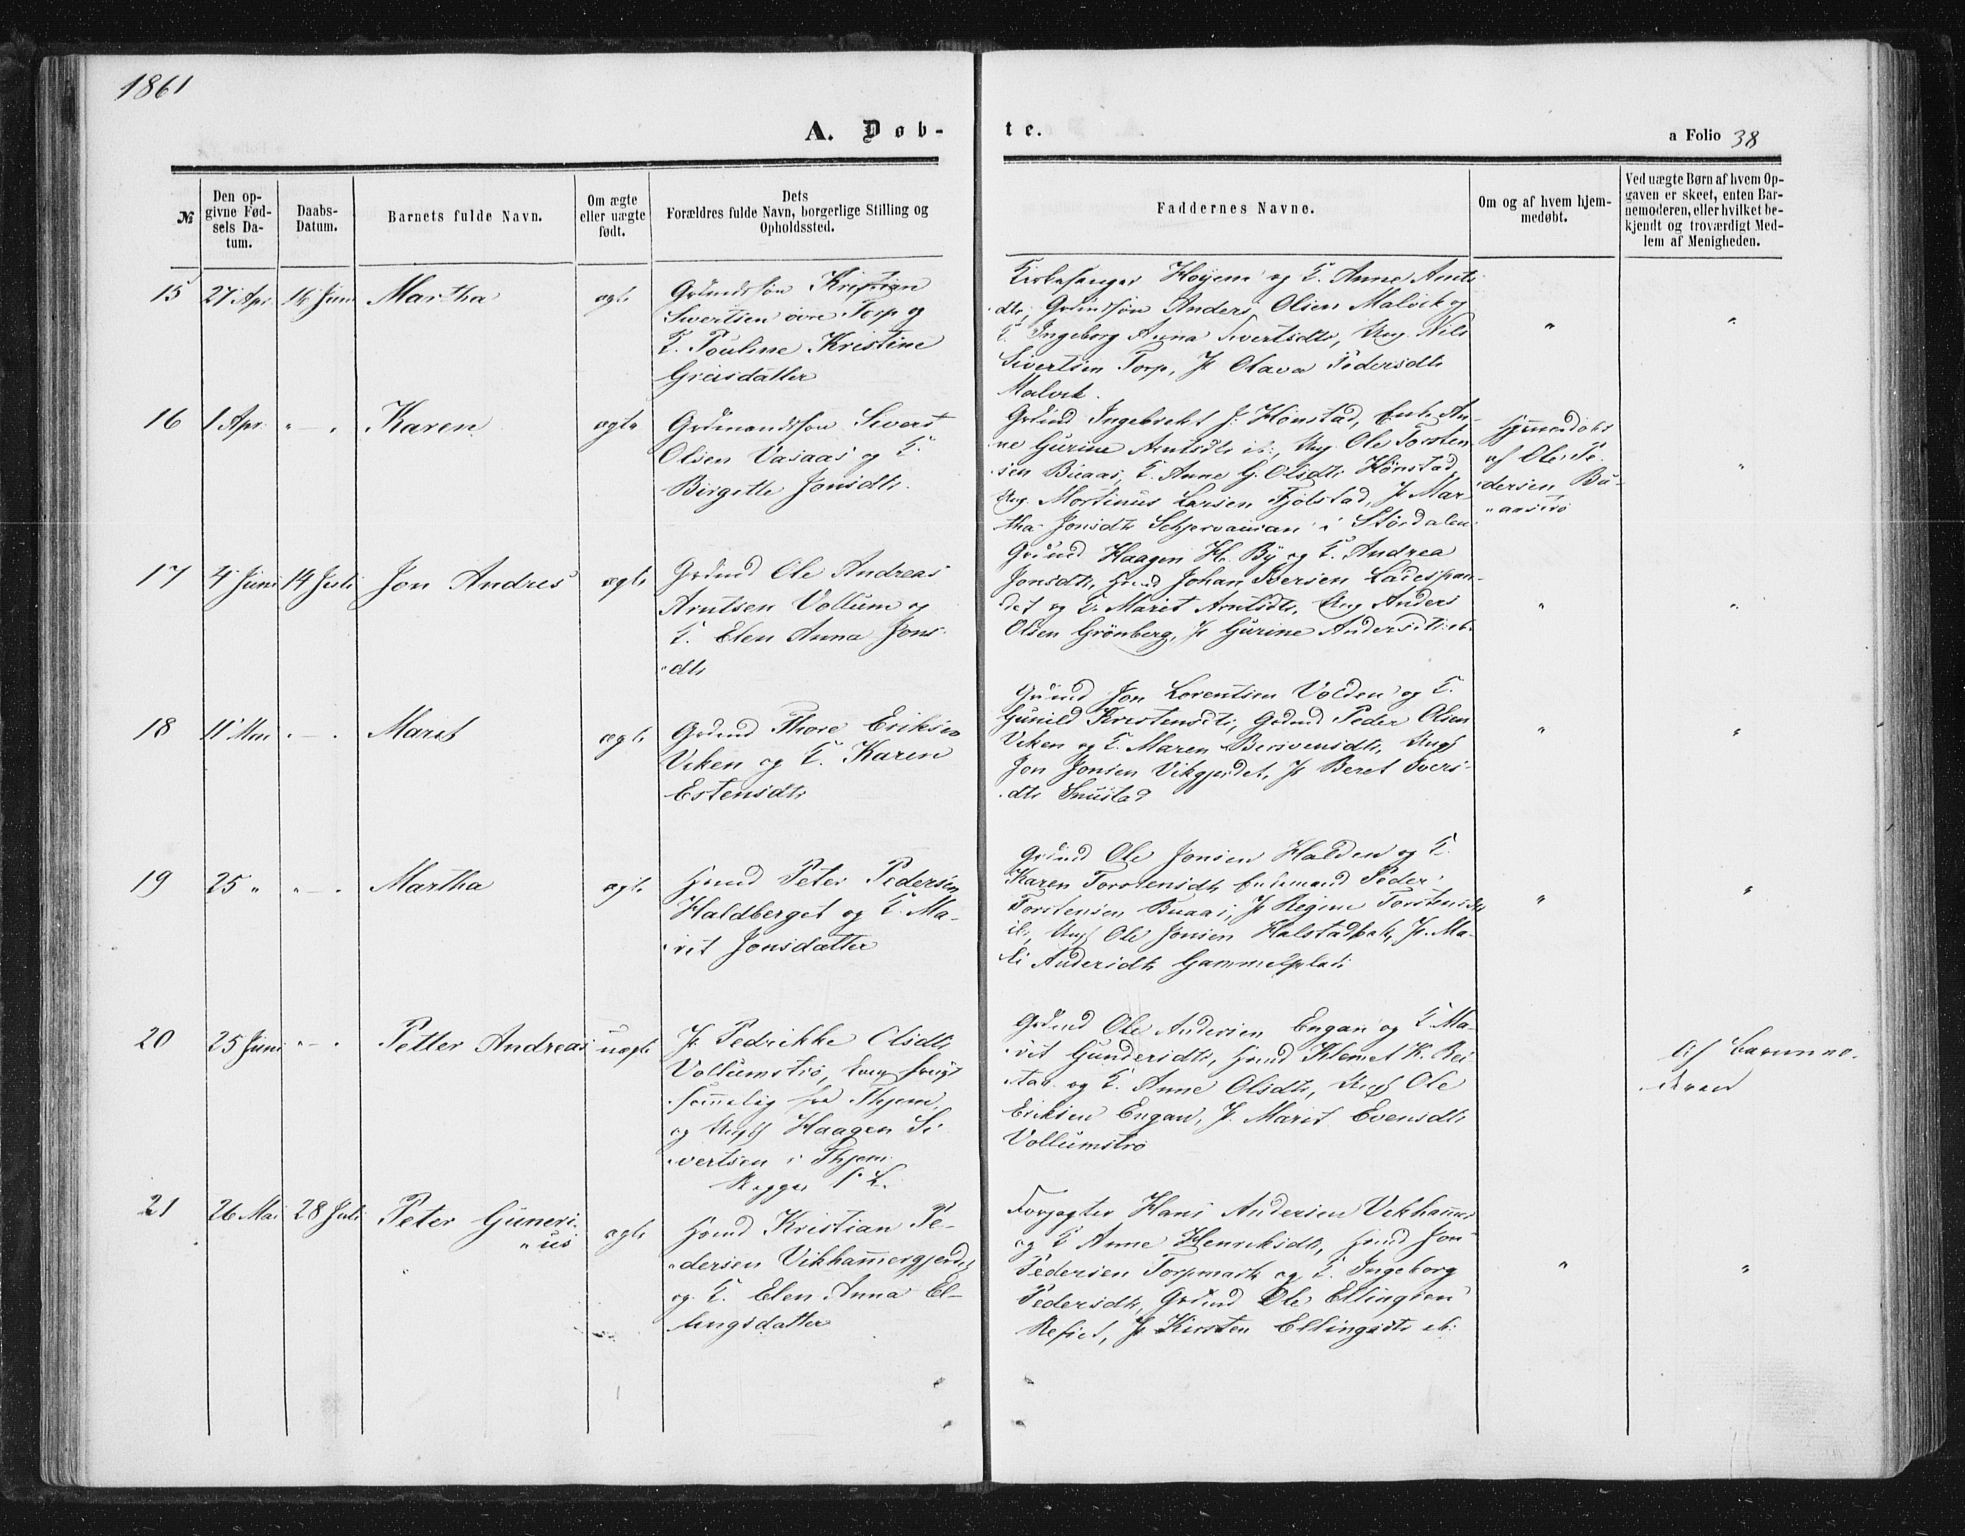 1861
A. Døb-
te.
a Folio 38
№
Den op-
givne Fød-
sels Da-
tum.
Daabs-
Datum.
Barnets fulde Navn.
Om ægte
eller uægte
født.
Dets
Forældres fulde Navn, borgerlige Stilling og
Opholdssted.
Faddernes Navne.
Om og af hvem hjem-
medøbt.
Ved uægte Børn af hvem Op-
gaven er skeet, enten Bar-
nemoderen, eller hvilket be-
kjendt og troværdigt Med-
lem af Menigheden.
15
27 Apr
16 Juni
Martha
ægte
Grundssøn Kristian
Sivertsen øvre Torp og
K. Pouline Kristine
Greisdatter
Kirkesanger Høyem og K. Anne Arnts
dtr, Grundssøn Anders Olsen Malvik og
K. Ingeborg Anna Sivertsdtr, Ung. Nils
Sivertsen Torp, P. Olava Pedersdtr
Malvik.
"
"
16
1 Apr
" — "
Karen
ægte
Grdmandssøn Sivert
Olsen Vasaas og K.
Birgitte Jonsdtr.
Grdmd Ingebrekt J. Hønstad, Enk. An-
ne Gurine Arntsdtr ib:, Ung Ole Torsten
sen Buaas, K. Anne G. Olsdtr Hønstad,
Ung. Mortinus Larsen Fjølstad, P. Mar
tha Jonsdtr i Størdalen.
Hjemmedøbt
af Ole Pe-
dersen Bu-
aastrø
"
17
4 Juni
14 Juli
Jon Andres
ægte
Grdmd Ole Andreas
Arntsen Vollum og
K. Elen Anna Jons-
dtr
Grdmd Haagen H. By og K. Andrea
Jonsdtr, Hmd Johan Iversen
og K. Marit Arntsdtr, Ung Anders
Olsen Grønberg, P. Gurine Andersdtr ib.
"
"
18
11 Mai
" — "
Marit
ægte
Grdmd Thore Eriksen
Viken og K. Karen
Estensdtr
Grdmd Jon Lorentsen Volden og K.
Gunild Kristensdtr, Grdmd Peder Olsen
Viken og K. Maren, Ung
Jon Jonsen Vikgjerdet, P. Beret Ivers-
dtr Snustad
"
"
19
25 "
" — "
Martha
ægte
Hmd Peter Pedersen
Haldberget og K. Ma-
rit Jonsdatter
Grdmd Ole Jonsen Halden og K.
Karen Torstensdtr, Enkemand Peder
Torstensen Buaas, P. Regine Torstensdtr
ib, Ung Ole Jonsen, P. Ma-
li Andersdtr Gammelplads
"
"
20
25 Juni
" — "
Petter Andreas
uægte
P. Pedrikke Olsdtr
Vollumstrø,
fra Thjem,
og Ung Haagen Si
vertsen i Thjem
Begges
Grdmd Ole Andersen Engan og K. Ma-
rit Gundersdtr, Hmd Klemet K. Rei
tan og K. Anne Olsdtr, Ung Ole
Eriksen Engan, P. Marit Evensdtr
Vollumstrø
Af Barnemo-
deren
21
26 Mai
28 Juli
Peter Guneri-
us
ægte
Hmd Kristian Pe-
dersen Vikhamergjerdet
og K. Elen Anna El-
lingsdatter
Forpagter Hans Andersen Vikhamer
og K Anne Henriksdtr, Hmd Jon
Pedersen Torpmark og K. Ingeborg
Pedersdtr, Grdmd Ole Ellingsen
Refset, P. Kirsten Ellingsdtr ib:
"
"